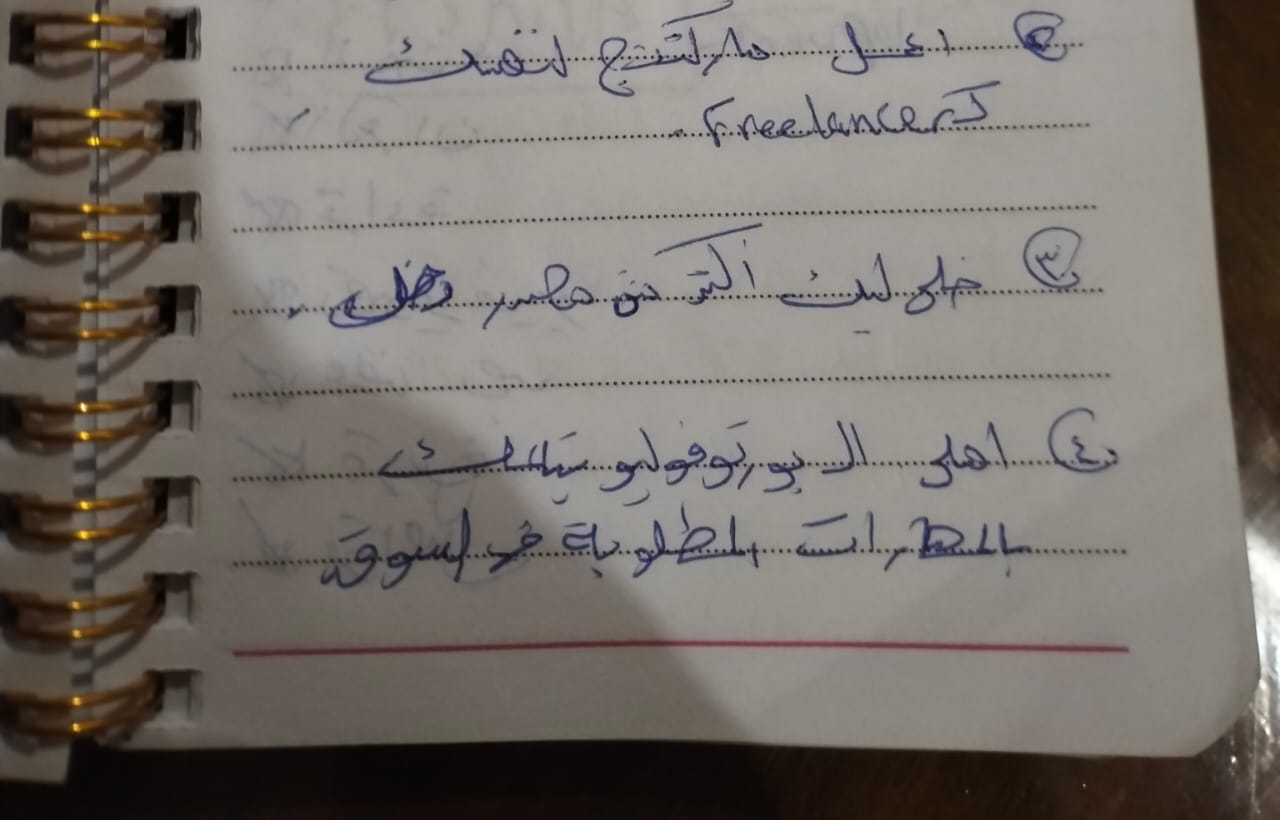 ② اعمل ماركتنج لنفسك
كـ Freelancer.
③ خلى ليك أكتر من مصدر دخل.
④ املى البورتوفوليو بتاعك
بالمهارات المطلوبة فى السوق